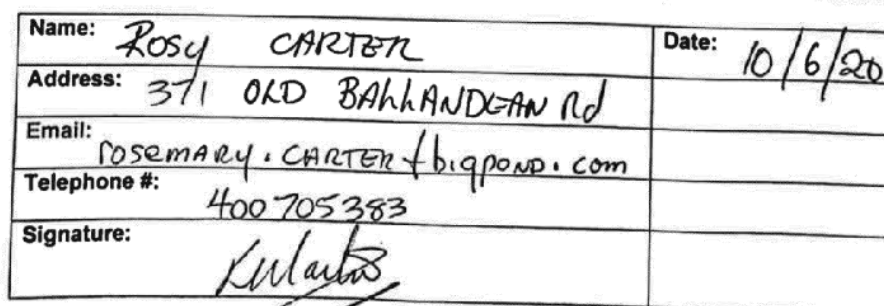 Name: Rosy CARTER Date: 10/6/20
Address: 371 OLD BALLANDEAN Rd
Email: rosemary.CARTER+bigpond.com
Telephone #: 400 705383
Signature: